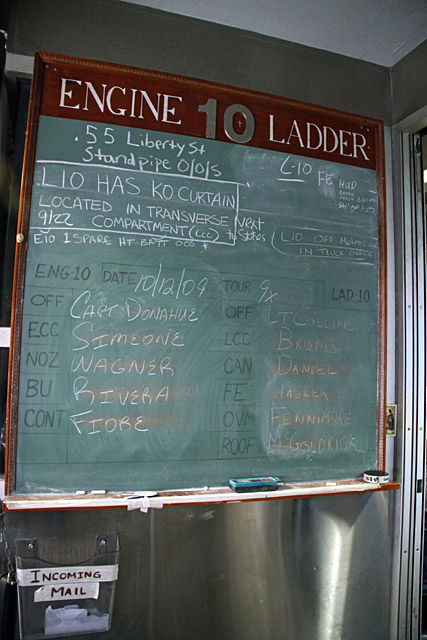 ENGINE 10 LADDER
.55 Liberty St
Standpipe O/O/S
L-10
FE HUD
L10 HAS KO CURTAIN
LOCATED IN TRANSVERSE
COMPARTMENT (CCC)
Next to Stokes
9/22
E10 1 SPARE HT BATT OOS
L10 OFF
IN TRUCK OFFICE
ENG-10 DATE 10/12/09 TOUR 9x LAD-10
OFF CAPT DONAHUE OFF LT COLLINS
ECC SIMEONE LCC
NOZ WAGNER CAN DANIEL
BU RIVERA FE
CONT FIORE OVM
ROOF
INCOMING
MAIL